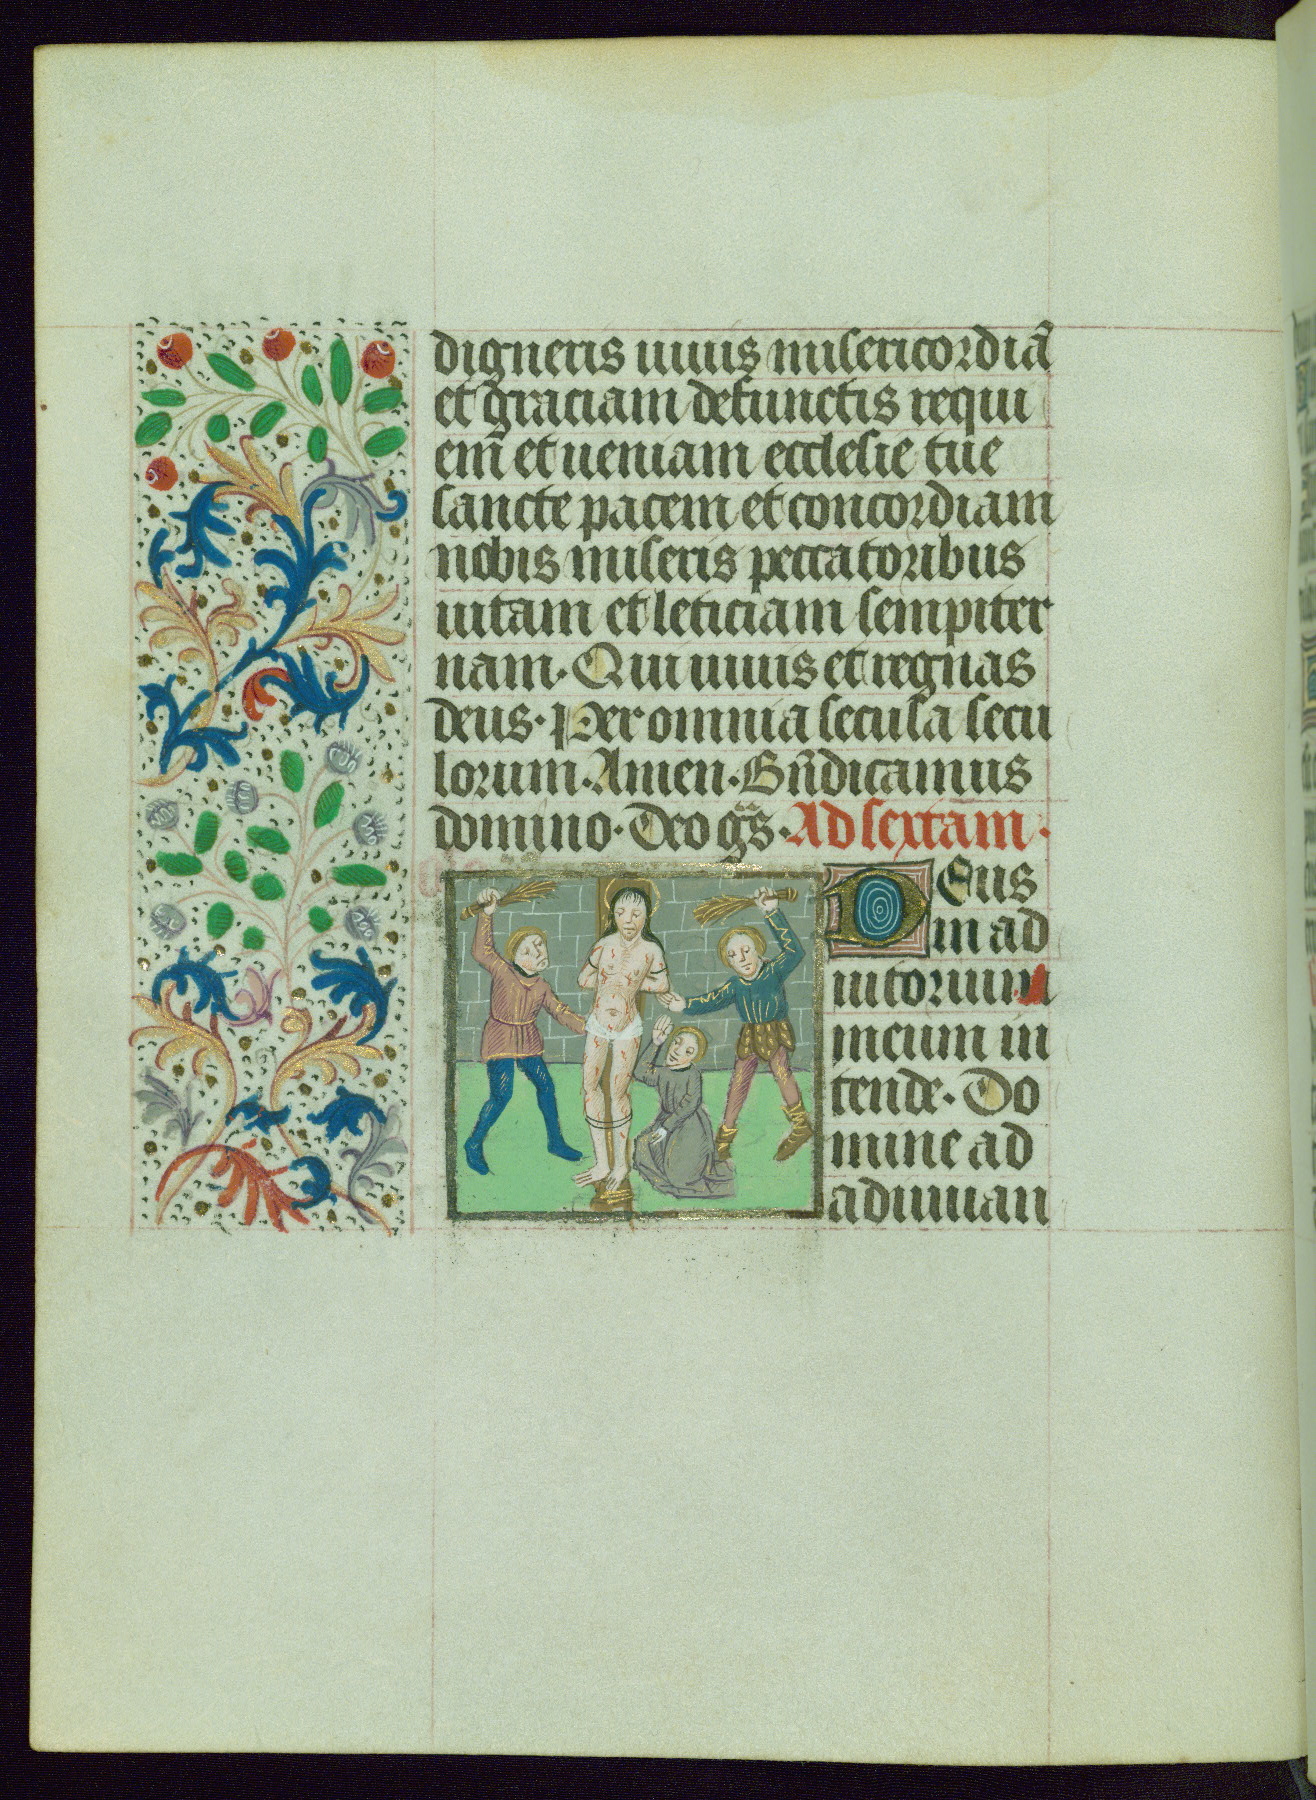 digneris uiuis misericordiā
et graciam defunctis requi
em et ueniam ecclesie tue
sancte pacem et concordiam
nobis miseris peccatoribus
uitam et leticiam sempiter
nam. Qui uiuis et regnas
deus. Per omnia secula secu
lorum. Amen. Bn̄dicamus
domino. Deo gr̄s. Ad sextam.
Deus
in ad
iutorium
meum in
tende. Do
mine ad
adiuuan